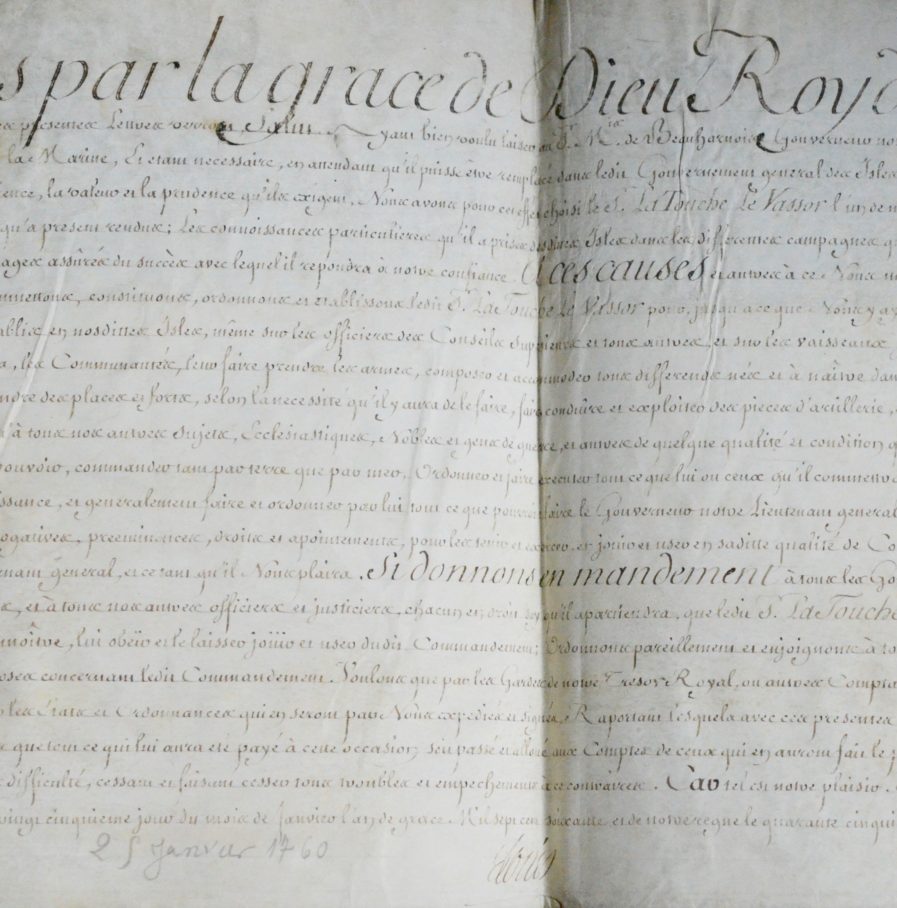 s par la grace de Dieu Roy d
ces presentes Lettres verront Salut. Ayant bien voulu laisser au S. M.is de Beauharnois Gouverneur no
la Marine, Et étant necessaire, en attendant qu'il puisse être remplacé dans ledit Gouvernement general des Isles
ience, la valeur et la prudence qu'ils exigent, Nous avons pour cet effet choisi le S. La Touche Le Vassor l'un de n
qu'à present rendus; Les connoissances particulieres qu'il a prises desdites Isles dans les differentes campagnes q
ages assurés du succès avec lequel il repondra à notre confiance. A ces causes et autres à ce Nous
mmettons, constituons, ordonnons et etablissons ledit S. La Touche Le Vassor pour, jusqu'a ce que Nous y ay
ablis en nosdittes Isles, même sur les officiers des Conseils Superieurs et tous autres, et sur les vaisseaux
a, les Communautés, leur faire prendre les armes, composer et accommoder tous differends nés et à naître dan
ndre des places et forts, selon la necessité qu'il y aura de le faire, faire conduire et exploiter des pieces d'artillerie,
à tous nos autres Sujets, Ecclesiastiques, Nobles et gens de guerre, et autres de quelque qualité et condition q
pouvoir, commander tant par terre que par mer, Ordonner et faire executer tout ce que lui ou ceux qu'il commettra
issance, et generalement faire et ordonner par lui tout ce que pourroit faire le Gouverneur notre Lieutenant general
ogatives, preeminences, droits et apointements, pour les tenir et exercer, en jouir et user en saditte qualité de Co
rnant général, et ce tant qu'il Nous plaira. Si donnons en mandement à tous les Go
s, et à tous nos autres officiers et justiciers, chacun en droit soy qu'il apartiendra, que ledit S. La Touche
nnoître, lui obeïr et le laisser joüir et user dudit Commandement; Ordonnons pareillement et enjoignons à to
oses concernant ledit Commandement. Voulons que par les Gardes de notre Tresor Royal, ou autres Compta
les États et Ordonnances qui en seront par Nous expediés et signés, Raportant lesquels avec ces presentes
que tout ce qui lui aura eté payé à cette occasion, soit passé et alloué aux Comptes de ceux qui en auront fait le p
difficulté, cessant et faisant cesser tous troubles et empechements à ce contraires. Car tel est notre plaisir.
vingt cinquieme jour du mois de Janvier l'an de grace Mil sept cent soixante, et de notre regne le quarante cinqui
25 Janvier 1760
Louis